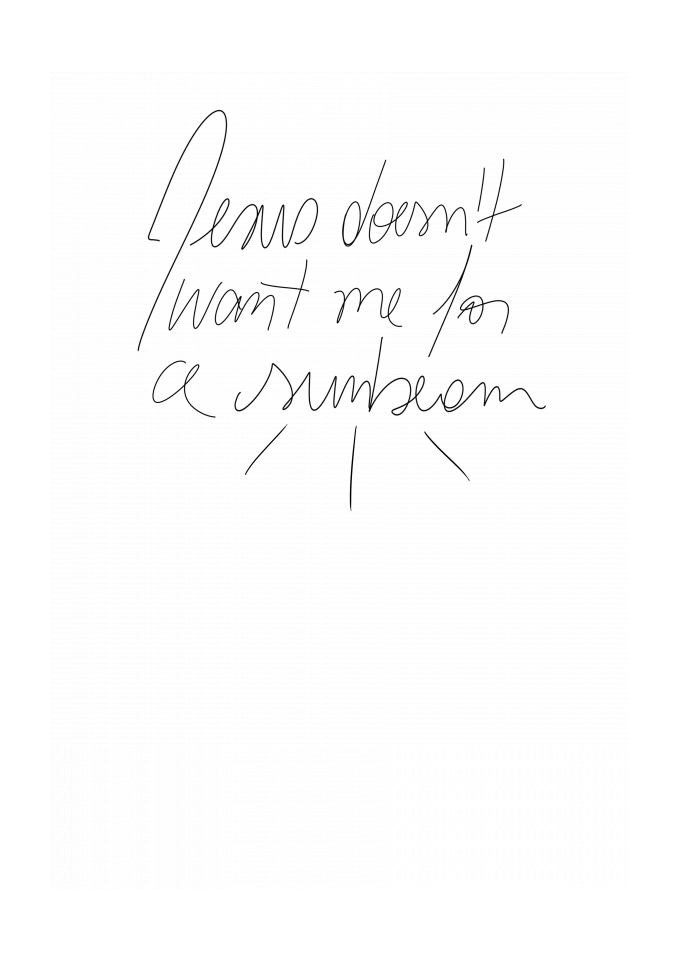 Jesus doesn't
want me for
a sunbeam